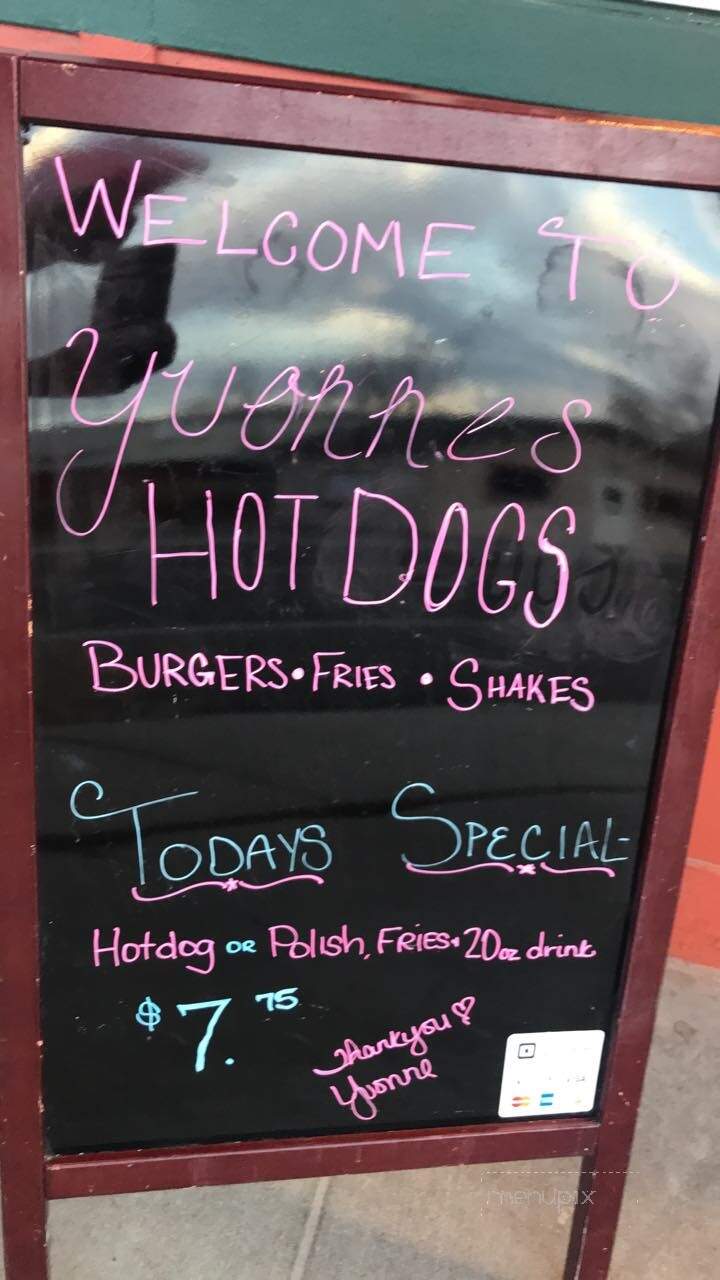 WELCOME TO
Yvonnes
HOT DOGS
BURGERS • FRIES • SHAKES
TODAYS SPECIAL
Hotdog OR Polish, FRIES • 20oz drink
$7.75
Thankyou ♡
Yvonne
menupix